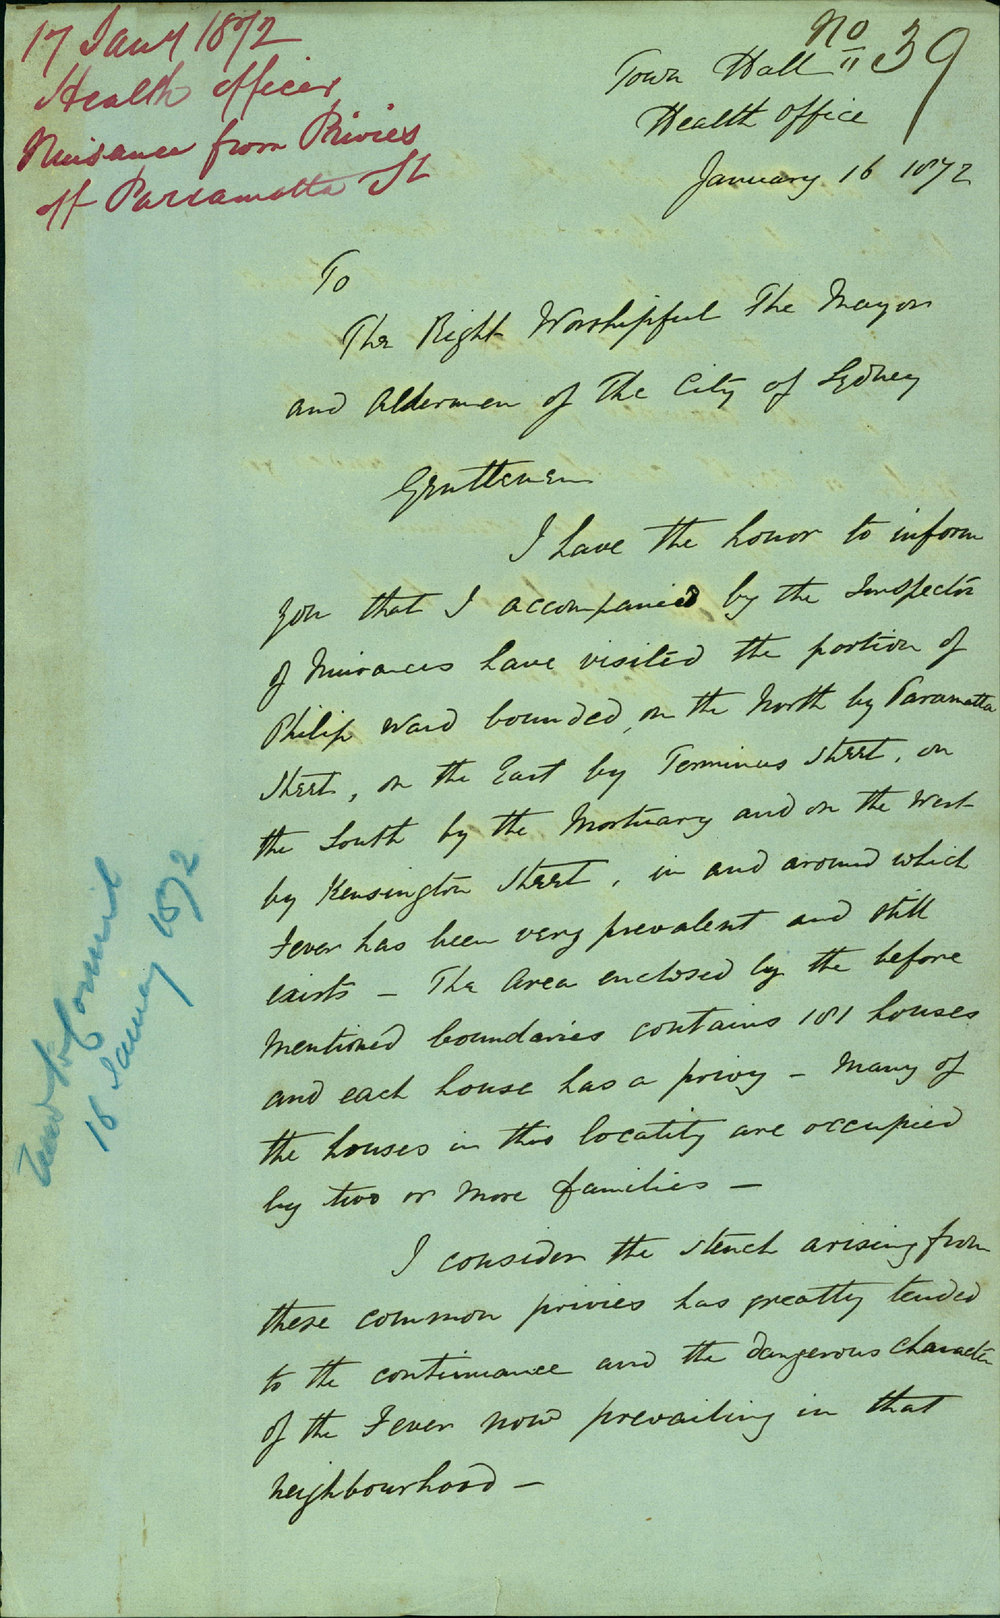 17 Jany 1872
Health officer
Nuisance from Privies
off Parramatta St
No 39
Town Hall
Health Office
January 16 1872
To
The Right Worshipful The Mayor
and Aldermen of The City of Sydney
Gentlemen
I have the honor to inform
you that I accompanied by the Inspector
of Nuisances have visited the portion of
Philip Ward bounded, on the North by Paramatta
Street, on the East by Terminus Street, on
the South by the Mortuary and on the West
by Kensington Street, in and around which
Fever has been very prevalent and still
exists – The Area enclosed by the before
mentioned boundaries contains 181 houses
and each house has a privy – Many of
the houses in this locality are occupied
by two or more families –
I consider the stench arising from
these common privies has greatly tended
to the continuance and the dangerous character
of the Fever now prevailing in that
neighbourhood –
Council
January 1872